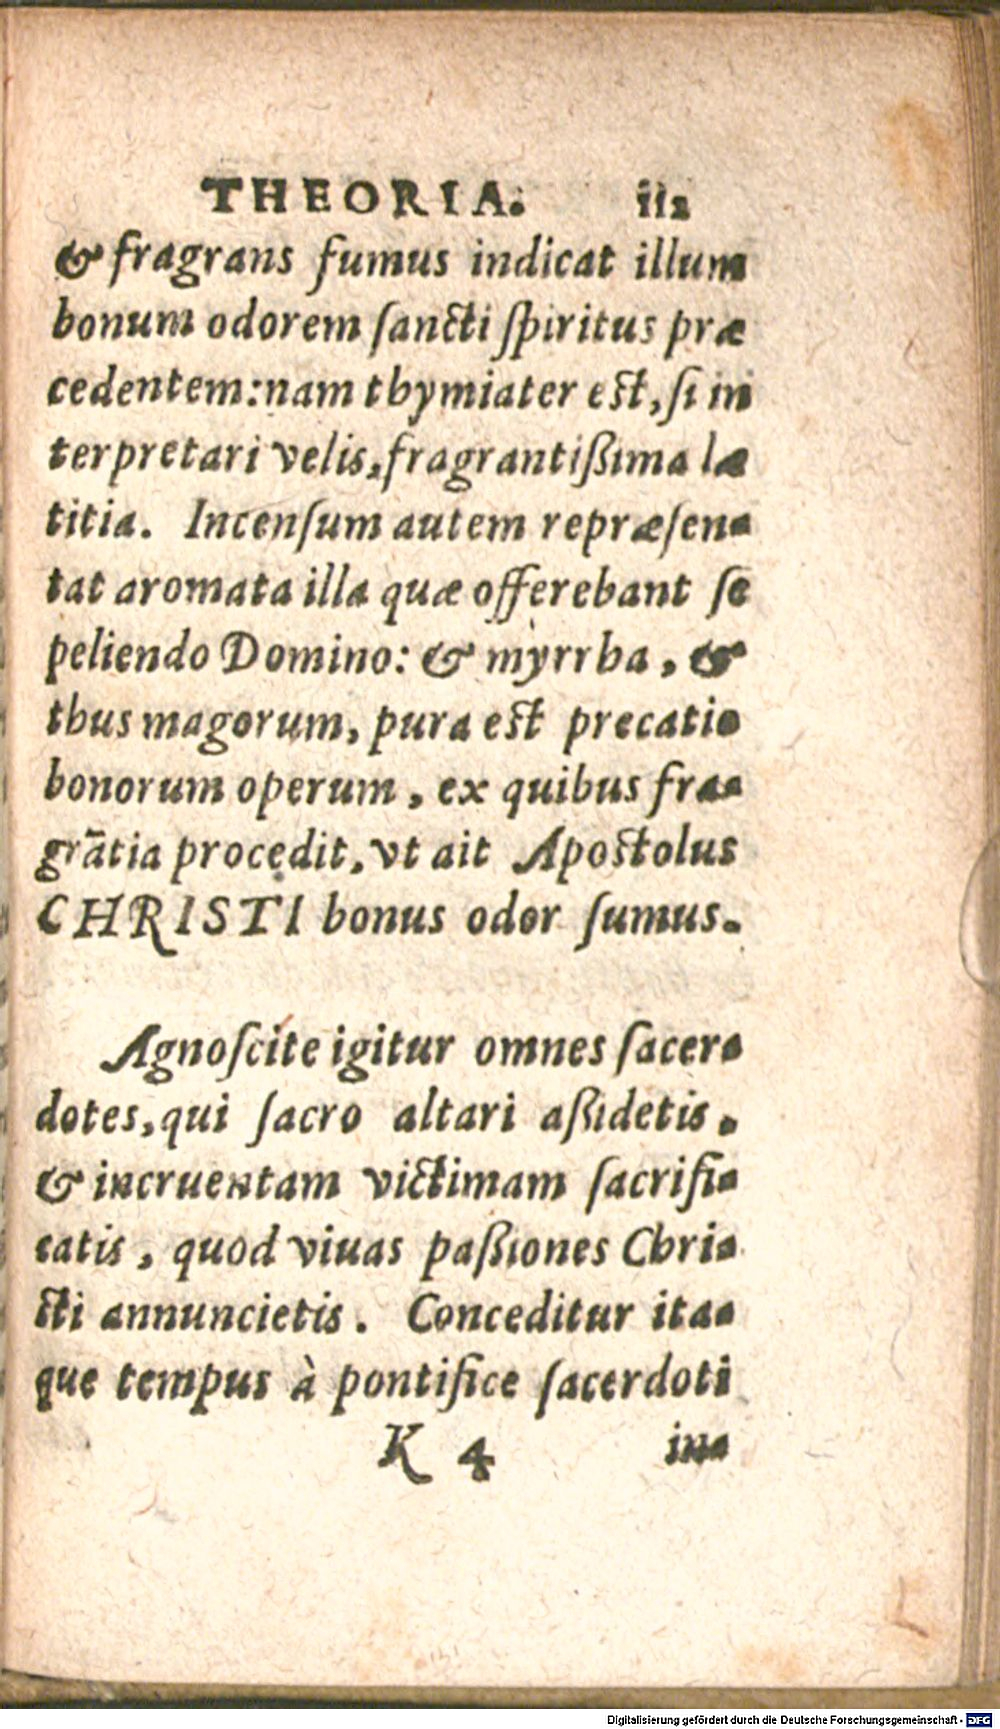 THEORIA. 112
& fragrans fumus indicat illum
bonum odorem ſancti ſpiritus præ
cedentem: nam thymiater eſt, ſi in
terpretari velis, fragrantiſſima læ
titia. Incenſum autem repræſen-
tat aromata illa quæ offerebant ſe
peliendo Domino: & myrrha, &
thus magorum, pura eſt precatio
bonorum operum, ex quibus fra-
grãtia procedit, vt ait Apoſtolus
CHRISTI bonus odor ſumus.
Agnoſcite igitur omnes ſacer-
dotes, qui ſacro altari aſſidetis,
& incruentam victimam ſacrifi-
catis, quod viuas paſſiones Chri-
ſti annuncietis. Conceditur ita-
que tempus à pontifice ſacerdoti
K 4 in-
Digitalisierung gefördert durch die Deutsche Forschungsgemeinschaft - DFG